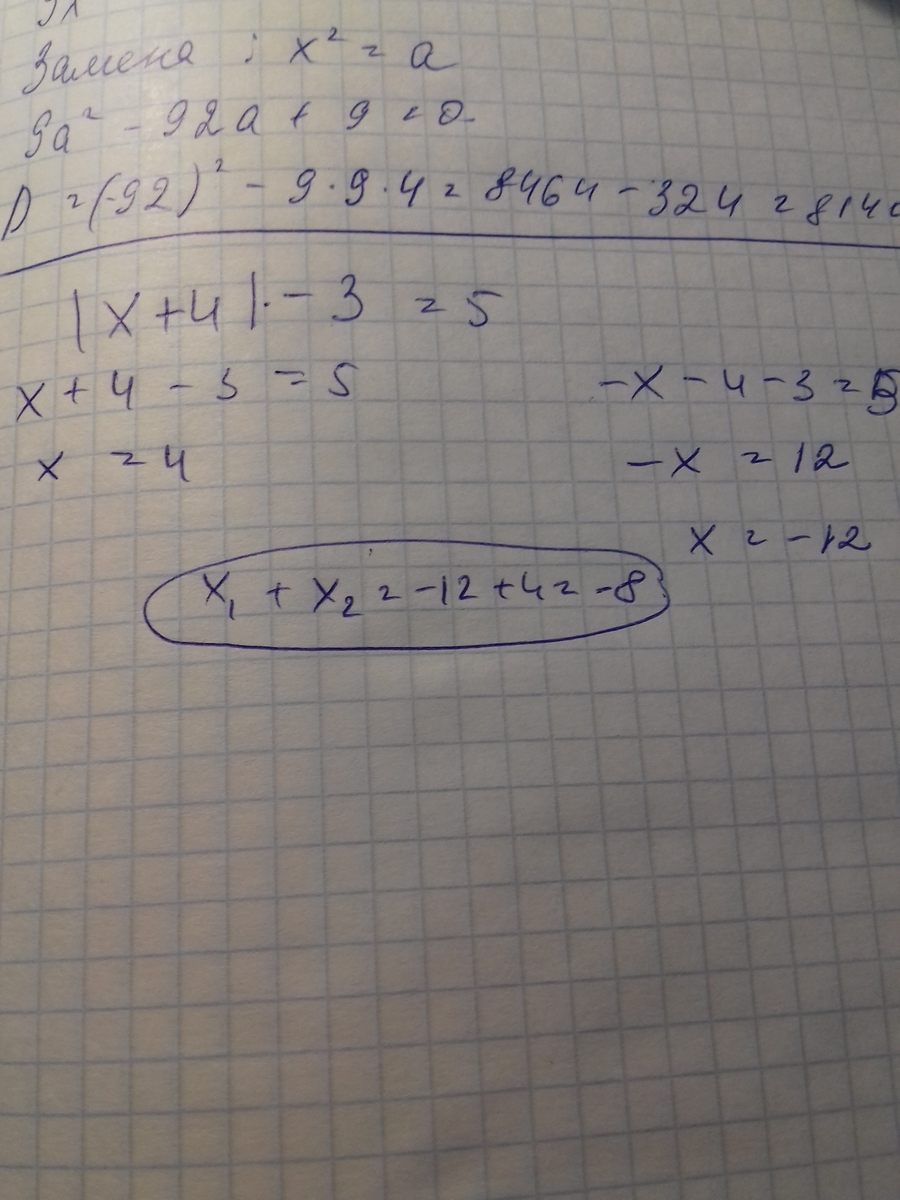 Замена : x² = a
9a² - 92a + 9 = 0
D = (-92)² - 9·9·4 = 8464 - 324 = 814
|x+4| · - 3 = 5
x + 4 - 3 = 5
-x - 4 - 3 = 5
x = 4
-x = 12
x = -12
x₁ + x₂ = -12 + 4 = -8